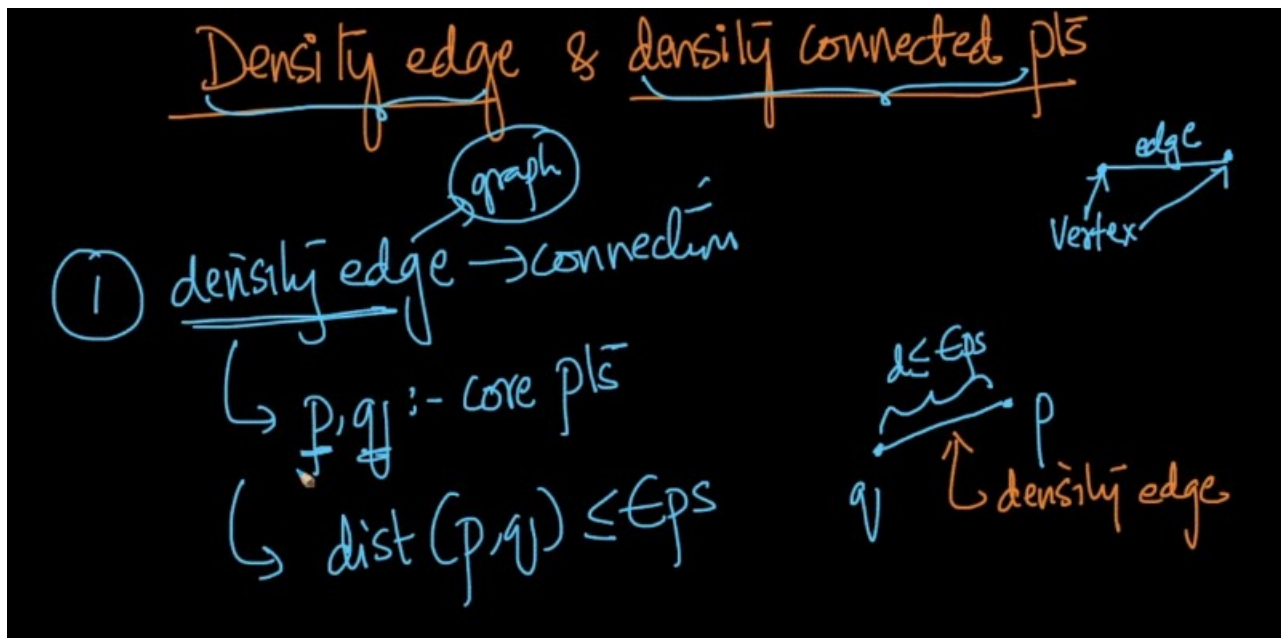 Density edge & density connected pts
graph
edge
Vertex
1 density edge → connection
p, q :- core pts
dist (p, q) ≤ Eps
d ≤ Eps
p
q
density edge